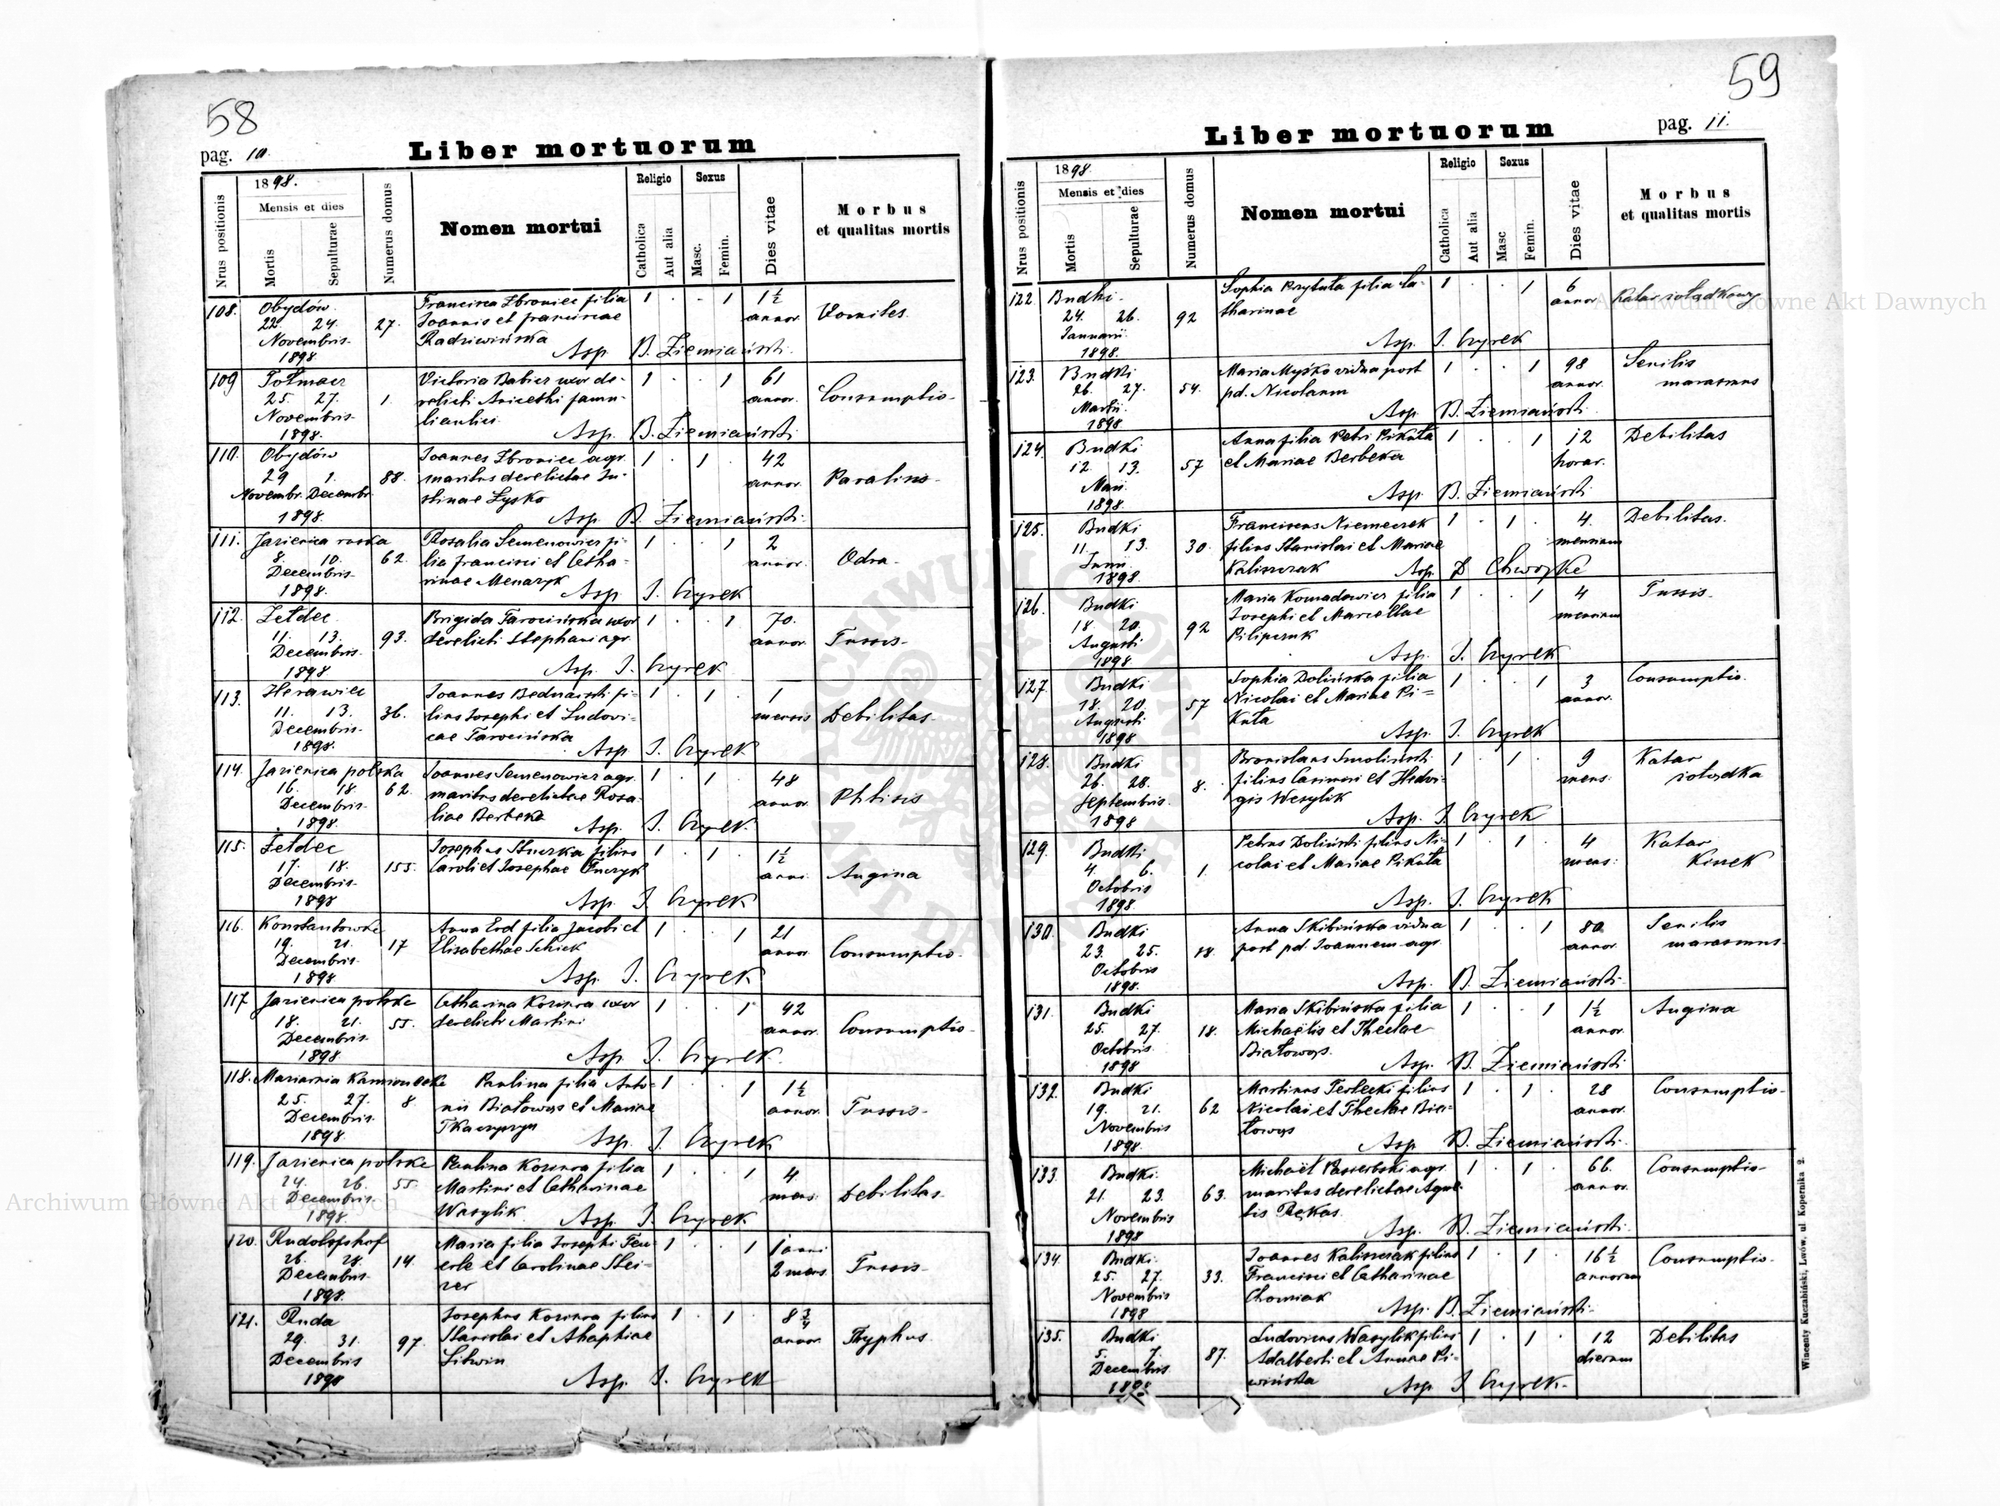 58
pag. 10.
Liber mortuorum
Nrus positionis
1898.
Mensis et dies
Mortis
Sepulturae
Numerus domus
Nomen mortui
Religio
Catholica
Aut alia
Sexus
Masc.
Femin.
Dies vitae
Morbus
et qualitas mortis
108. Obydów Francisca Zbroniec filia 1 . . 1 1½
22 24. 27. Joannis et Franciscae annor. Vomites.
Novembris Radziwińska
1898 Asp. B. Ziemiański.
109 Tołmacz Victoria Babicz uxor de- 1 . . 1 61
25. 27. 1. relicti Anicethi famu- annor. Consumptio.
Novembris lianlici
1898. Asp. B. Ziemiański
110. Obydów Joannes Zbroniec agr. 1 . 1 . 42
29 1. 88. maritus derelictae Ju- annor. Paralisis.
Novembr. Decembr. stinae Łysko
1898. Asp. B. Ziemiański.
111. Jazienica ruska Rosalia Semenowicz fi- 1 . . 1 2
8. 10. 62. lia Francisci et Catha- annor. Odra.
Decembris rinae Menazyk
1898. Asp. J. Czyrek
112. Żełdec Brigida Tarocińska uxor 1 . . 1 70.
11. 13. 93. derelicti Stephani agr. annor. Tussis.
Decembris
1898 Asp. J. Czyrek
113. Herawiec Joannes Bednarski fi- 1 . 1 . 1
11. 13. 36. lius Josephi et Ludovi- mensis Debilitas.
Decembris cae Tarocińska
1898. Asp. J. Czyrek
114. Jazienica polska Joannes Semenowicz agr. 1 . 1 48
16. 18 62. maritus derelictae Rosa- annor. Phtisis
Decembris liae Berbeka
1898. Asp. J. Czyrek.
115. Żełdec Josephus filius 1 . 1 . 1½
17. 18. 155. Caroli et Josephae anni. Angina
Decembris
1898 Asp. J. Czyrek
116. Konstantówka Anna Erd filia Jacobi et 1 . . 1 21
19. 21. 17 Elisabethae Schick annor. Consumptio.
Decembris
1898 Asp. J. Czyrek
117 Jazienica polska Catharina Koziura uxor 1 . . 1 42
18. 21. 55. derelicti Martini annor. Consumptio.
Decembris
1898 Asp. J. Czyrek.
118. Mariarnia Kamionecka Paulina filia Anto- 1 . . 1 1½
25. 27. 8 nii Białowąs et Mariae annor. Tussis.
Decembris Tkaczyszyn
1898. Asp. J. Czyrek
119. Jazienica polska Paulina Koziura filia 1 . . 1 4
24. 26. 55. Martini et Catharinae mens: Debilitas.
Decembris Wasylik.
1898. Asp. J. Czyrek
120. Rudolfshof Maria filia Josephi Feu- 1 . . 1 1 anni
26. 28. 14. erle et Carolinae Stei- 2 mens. Tussis.
Decembris ner
1898.
121. Ruda Josephus Koziura filius 1 . 1 . 8¾
29. 31. 97. Stanislai et Ahaphiae annor. Thyphus.
Decembris Litwin
1898 Asp. J. Czyrek
59
pag. 11.
Liber mortuorum
Nrus positionis
1898.
Mensis et dies
Mortis
Sepulturae
Numerus domus
Nomen mortui
Religio
Catholica
Aut alia
Sexus
Masc
Femin.
Dies vitae
Morbus
et qualitas mortis
122. Budki. Sophia Przytuła filia Ca- 1 . . 1 6 Katar żołądkowy
24. 26. 92 tharinae annor.
Januarii
1898. Asp. J. Czyrek
123. Budki Maria Myśko vidua post 1 . . 1 98 Senilis
26. 27. 54. pd. Nicolaum annor. marasmus
Martii.
1898 Asp. B. Ziemiański.
124. Budki Anna filia Petri Pikuta 1 . . 1 12 Debilitas
12. 13. 57 et Mariae Berbeka horar.
Maii
1898 Asp. B. Ziemiański
125. Budki Franciscus Niemeczek 1 . 1 . 4. Debilitas.
11. 13. 30. filius Stanislai et Mariae mensium
Junii Kaliszczak Asp. D Chwojka
1898.
126. Budki Maria Komadowicz filia 1 . . 1 4 Tussis.
18. 20. 92 Josephi et Marcellae mensium
Augusti Pilipczuk
1898 Asp. J. Czyrek
127. Budki Sophia Dolińska filia 1 . . 1 3 Consumptio.
18. 20. 57 Nicolai et Mariae Pi- annor.
Augusti kuta
1898 Asp. J. Czyrek
128. Budki Bronislaus Smoliński 1 . 1 . 9 Katar
26. 28. 8. filius Casimiri et Hedvi- mens: żołądka
Septembris gis Wasylik
1898 Asp. J. Czyrek
129. Budki Petrus Doliński filius Ni- 1 . 1 . 4 Katar
4. 6. 1. colai et Mariae Pikuta mens: Kiszek
Octobris
1898 Asp. J. Czyrek
130. Budki Anna Skibińska vidua 1 . . 1 80. Senilis
23. 25. 18. post pd. Joannem agr. annor. marasmus.
Octobris
1898. Asp. B. Ziemiański.
131. Budki Maria Skibińska filia 1 . . 1 1½ Angina
25. 27. 18. Michaëlis et Theclae annor.
Octobris Białowąs.
1898 Asp. B. Ziemiański
132. Budki Martinus Terlecki filius 1 . 1 . 28 Consumptio.
19. 21. 62 Nicolai et Theclae Bia- annor.
Novembris łowąs
1898. Asp. B. Ziemiański.
133. Budki. Michaël Passerbski agr. 1 . 1 . 66. Consumptio.
21. 23. 63. maritus derelictae Agne- annor.
Novembris tis Rękas.
1898 Asp. B. Ziemiański.
134. Budki. Joannes Kaliszczak filius 1 . 1 . 16½ Consumptio.
25. 27. 33. Francisci et Catharinae annorum
Novembris Chomiak
1898 Asp. B. Ziemiański.
135. Budki Ludovicus Wasylik filius 1 . 1 . 12 Debilitas
5. 7. 87. Adalberti et Annae Pi- dierum
Decembris wińska
1898 Asp. J Czyrek.
Wincenty Kuczabiński, Lwów, ul. Kopernika 2.
Archiwum Główne Akt Dawnych
Archiwum Główne Akt Dawnych
ARCHIWUM GŁÓWNE AKT DAWNYCH